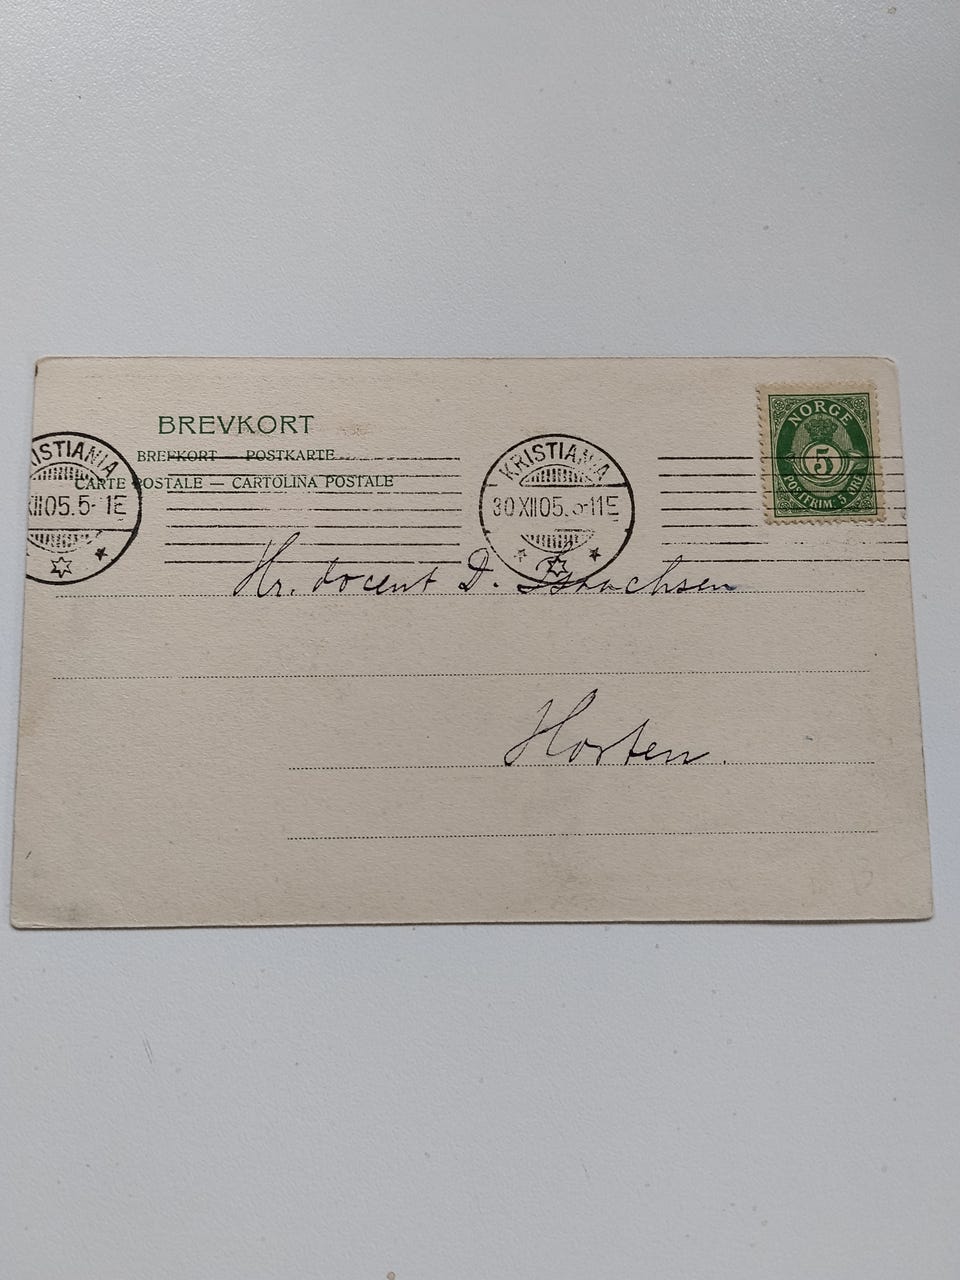 BREVKORT
BREFKORT — POSTKARTE
CARTE POSTALE — CARTOLINA POSTALE
KRISTIANIA
30 XII 05. 5-11E
KRISTIANIA
XII 05. 5-1E
NORGE
5
POSTFRIM. 5 ØRE
Hr. docent D. Isaachsen
Horten.